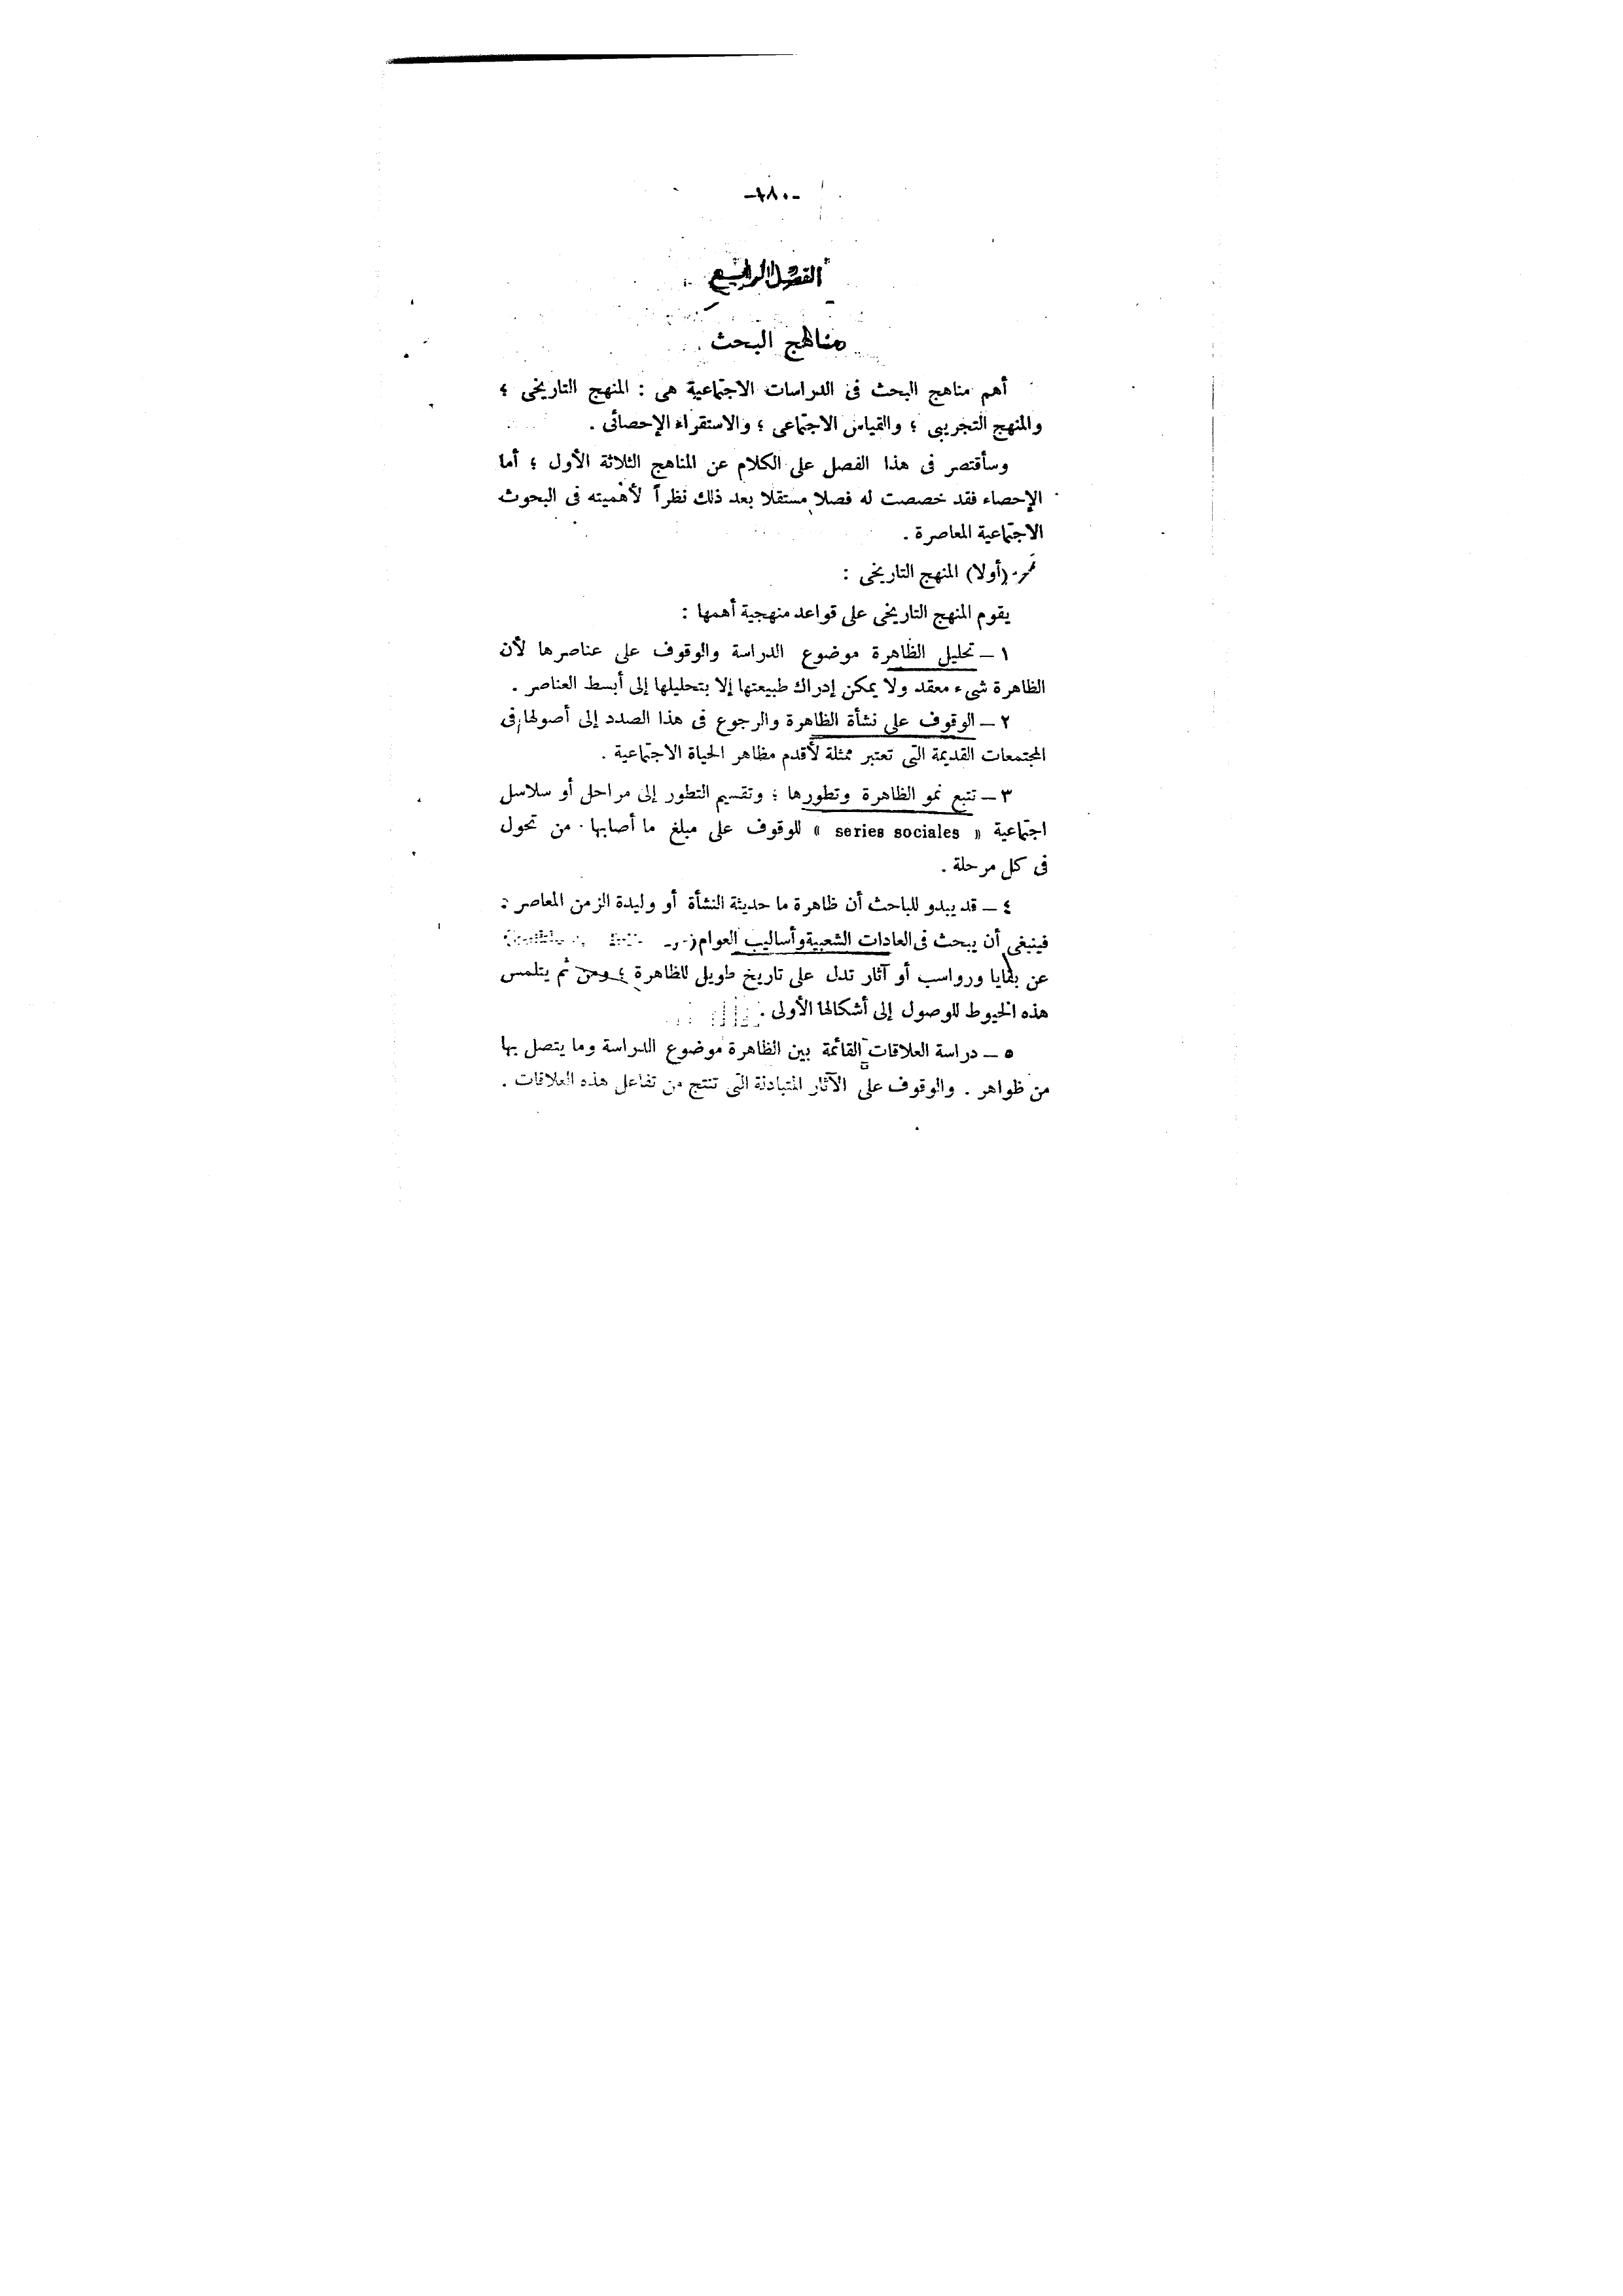 -١٨٠-
الفصل الرابع
مناهج البحث
أهم مناهج البحث فى الدراسات الاجتماعية هى : المنهج التاريخى ؛
والمنهج التجريبى ؛ والقياس الاجتماعى ؛ والاستقراء الإحصائى .
وسأقتصر فى هذا الفصل على الكلام عن المناهج الثلاثة الأول ؛ أما
الإحصاء فقد خصصت له فصلا مستقلا بعد ذلك نظراً لأهميته فى البحوث
الاجتماعية المعاصرة .
(أولا) المنهج التاريخى :
يقوم المنهج التاريخى على قواعد منهجية أهمها :
١ – تحليل الظاهرة موضوع الدراسة والوقوف على عناصرها لأن
الظاهرة شىء معقد ولا يمكن إدراك طبيعتها إلا بتحليلها إلى أبسط العناصر .
٢ – الوقوف على نشأة الظاهرة والرجوع فى هذا الصدد إلى أصولها فى
المجتمعات القديمة التى تعتبر ممثلة لأقدم مظاهر الحياة الاجتماعية .
٣ – تتبع نمو الظاهرة وتطورها ؛ وتقسيم التطور إلى مراحل أو سلاسل
اجتماعية « series sociales » للوقوف على مبلغ ما أصابها من تحول
فى كل مرحلة .
٤ – قد يبدو للباحث أن ظاهرة ما حديثة النشأة أو وليدة الزمن المعاصر :
فينبغى أن يبحث فى العادات الشعبية وأساليب العوام
عن بقايا ورواسب أو آثار تدل على تاريخ طويل للظاهرة ؛ ومن ثم يتلمس
هذه الخيوط للوصول إلى أشكالها الأولى .
٥ – دراسة العلاقات القائمة بين الظاهرة موضوع الدراسة وما يتصل بها
من ظواهر . والوقوف على الآثار المتبادلة التى تنتج من تفاعل هذه العلاقات .